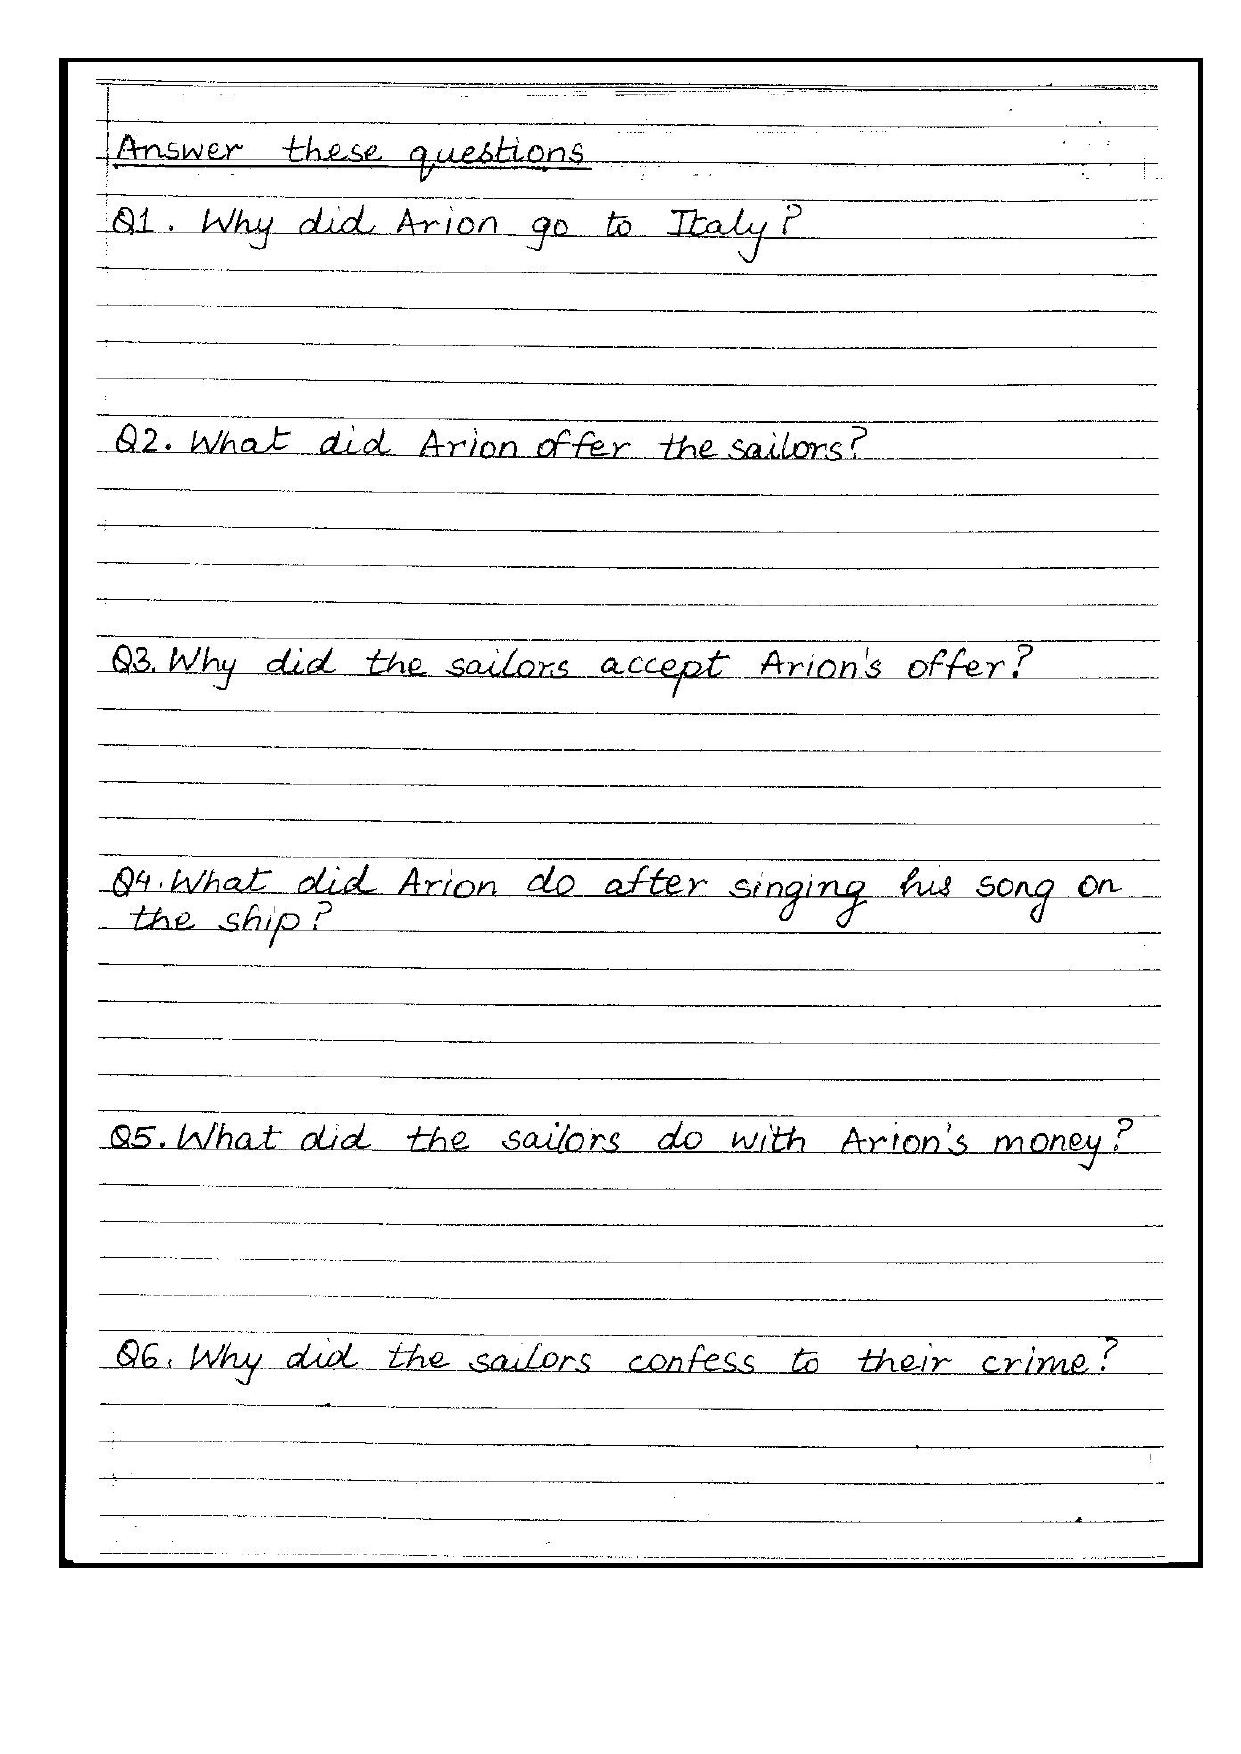 Answer these questions
Q1. Why did Arion go to Italy?
Q2. What did Arion offer the sailors?
Q3. Why did the sailors accept Arion's offer?
Q4. What did Arion do after singing his song on
the ship?
Q5. What did the sailors do with Arion's money?
Q6. Why did the sailors confess to their crime?